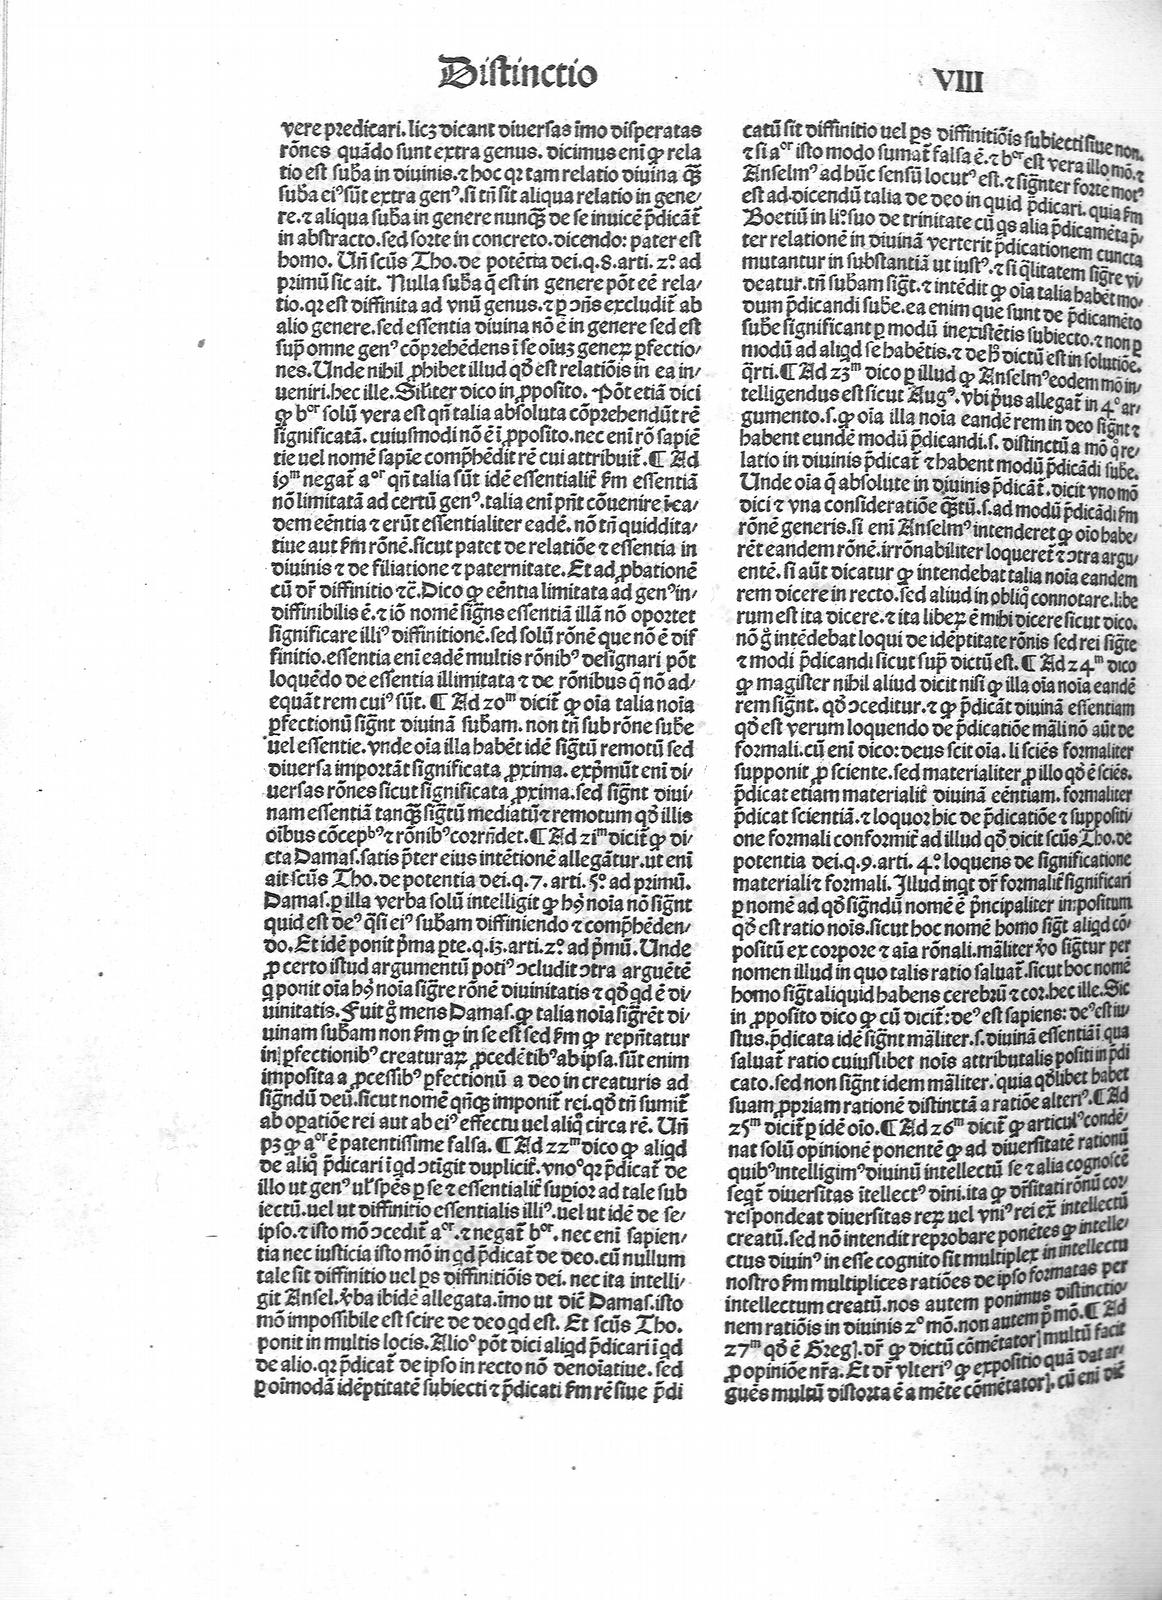 Distinctio
VIII
vere predicari. licꝫ dicant diuersas imo disperatas
rōnes quādo sunt extra genus. dicimus eni ꝙ rela
tio est suba in diuinis. ⁊ hoc qꝛ tam relatio diuina ꝙ̄
suba eiꝰ sūt extra genꝰ. si tn̄ sit aliqua relatio in gene/
re. ⁊ aliqua suba in genere nunꝙ̄ de se inuicē p̄dicāt
in abstracto. sed forte in concreto. dicendo: pater est
homo. Un̄ scūs Tho. de potētia dei. q. 8. arti. 2º ad
primū sic ait. Nulla suba q̄ est in genere pōt eē rela/
tio. qꝛ est diffinita ad vnū genus. ⁊ ꝑ ↄn̄s excludit̄ ab
alio genere. sed essentia diuina nō ē in genere sed est
sup̄ omne genꝰ cōprehēdens ī se oīuꝫ geneꝝ ꝑfectio/
nes. Unde nihil ꝓhibet illud qd̄ est relatiōis in ea in/
ueniri. hec ille. Siliter dico in ꝓposito. Pōt etiā dici
ꝙ bᵒʳ solū vera est qn̄ talia absoluta cōprehendūt rē
significatā. cuiusmodi nō ē ī ꝓposito. nec eni rō sapiē
tie uel nomē sapīe comp̄hēdit rē cui attribuit̄. ¶ Ad
19ᵐ negat̄ aᵒʳ qn̄ talia sūt idē essentialit̄ ẜm essentiā
nō limitatā ad certū genꝰ. talia eni pn̄t cōuenire ī ea/
dem eēntia ⁊ erūt essentialiter eadē. nō tn̄ quiddita/
tiue aut ẜm rōnē. sicut patet de relatiōe ⁊ essentia in
diuinis ⁊ de filiatione ⁊ paternitate. Et ad ꝓbationē
cū dr̄ diffinitio ⁊c̄. Dico ꝙ eēntia limitata ad genꝰ in/
diffinibilis ē. ⁊ iō nomē sign̄s essentiā illā nō oportet
significare illiꝰ diffinitionē. sed solū rōnē que nō ē dif
finitio. essentia eni eadē multis rōnibꝰ designari pōt
loquēdo de essentia illimitata ⁊ de rōnibus q̄ nō ad/
equāt rem cuiꝰ sūt. ¶ Ad 20ᵐ dicit̄ ꝙ oīa talia noīa
ꝑfectionū signt̄ diuinā subam. non tn̄ sub rōne sube
uel essentie. vnde oīa illa habēt idē sigtū remotū sed
diuersa importāt significata ꝓxima. exp̄mūt eni di/
uersas rōnes sicut significata ꝓxima. sed signt̄ diui/
nam essentiā tanꝙ̄ sigtū mediatū ⁊ remotum qd̄ illis
oībus cōcepᵇꝰ ⁊ rōnibꝰ corrn̄det. ¶ Ad 21ᵐ dicit̄ ꝙ di/
cta Damas. satis p̄ter eius intētionē allegātur. ut eni
ait scūs Tho. de potentia dei. q. 7. arti. 5º ad primū.
Damas. ꝑ illa verba solū intelligit ꝙ hꝰ noīa nō signt̄
quid est deꝰ q̄si eiꝰ subam diffiniendo ⁊ comp̄hēden/
do. Et idē ponit p̄ma ꝑte. q. 13. arti. 2º ad p̄mū. Unde
ꝓ certo istud argumentū potiꝰ ↄcludit ↄtra arguētē
q̄ ponit oīa hꝰ noīa sigre rōnē diuinitatis ⁊ qd̄ qd ē di/
uinitatis. Fuit g̊ mens Damas. ꝙ talia noīa sigrēt di/
uinam subam non ẜm ꝙ in se est sed ẜm ꝙ repn̄tatur
in ꝑfectionibꝰ creaturaꝝ ꝓcedētibꝰ ab ipsa. sūt enim
imposita a ꝓcessibꝰ ꝑfectionū a deo in creaturis ad
signdū deū. sicut nomē qn̄ꝙ imponit̄ rei. qd̄ tn̄ sumit̄
ab oꝑatiōe rei aut ab eiꝰ effectu uel aliq̊ circa rē. Un̄
pꝫ ꝙ aᵒʳ ē patentissime falsa. ¶ Ad 22ᵐ dico ꝙ aliqd
de aliq̊ p̄dicari ī qd ↄtigit duplicit̄. vnoº qꝛ p̄dicat̄ de
illo ut genꝰ ul̄ spēs ꝑ se ⁊ essentialit̄ suꝑior ad tale sub
iectū. uel ut diffinitio essentialis illiꝰ. uel ut idē de se/
ipso. ⁊ isto mō ↄcedit̄ aᵒʳ. ⁊ negat̄ bᵒʳ. nec eni sapien/
tia nec iusticia isto mō in qd p̄dicat̄ de deo. cū nullum
tale sit diffinitio uel ꝑs diffinitiōis dei. nec ita intelli/
git Ansel. v̄ba ibidē allegata. imo ut dic̄ Damas. isto
mō impossibile est scire de deo qd est. Et scūs Tho.
ponit in multis locis. Alioº pōt dici aliqd p̄dicari ī qd
de alio. qꝛ p̄dicat̄ de ipso in recto nō denoīatiue. sed
ꝑ oīmodā idēptitatē subiecti ⁊ p̄dicati ẜm rē siue p̄di
catū sit diffinitio uel ꝑs diffinitiōis subiecti siue non.
⁊ si aᵒʳ isto modo sumat̄ falsa ē. ⁊ bᵒʳ est vera illo mō. ⁊
Anselmꝰ ad hūc sensū locutꝰ est. ⁊ signter forte motꝰ
est ad dicendū talia de deo in quid p̄dicari. quia ẜm
Boetiū in li: suo de trinitate cū q̄s alia p̄dicamēta p̄/
ter relationē in diuinā verterit p̄dicationem cuncta
mutantur in substantiā ut iustꝰ. ⁊ si q̄litatem sigre vi/
deatur. tn̄ subam sigt. ⁊ intēdit ꝙ oīa talia habēt mo/
dum p̄dicandi sube. ea enim que sunt de p̄dicamēto
sube significant ꝑ modū inexistētis subiecto. ⁊ non ꝑ
modū ad aliqd se habētis. ⁊ de h̊ dictū est in solutiōe.
q̄rti. ¶ Ad 23ᵐ dico ꝑ illud ꝙ Anselmꝰ eodem mō in/
telligendus est sicut Augꝰ. vbi pꝰus allegat̄ in 4º ar/
gumento. s. ꝙ oīa illa noīa eandē rem in deo signt̄ ⁊
habent eundē modū p̄dicandi. s. distinctū a mō q̊ re/
latio in diuinis p̄dicat̄ ⁊ habent modū p̄dicādi sube.
Unde oīa q̄ absolute in diuinis p̄dicāt̄. dicit vno mō
dici ⁊ vna consideratiōe ꝙ̄tū. s. ad modū p̄dicādi ẜm
rōnē generis. si eni Anselmꝰ intenderet ꝙ oīo habe/
rēt eandem rōnē. irrōnabiliter loqueret̄ ⁊ ↄtra argu/
entē. si aūt dicatur ꝙ intendebat talia noīa eandem
rem dicere in recto. sed aliud in obliq̊ connotare. libe
rum est ita dicere. ⁊ ita libeꝝ ē mihi dicere sicut dico.
nō g̊ intēdebat loqui de idēptitate rōnis sed rei sigte
⁊ modi p̄dicandi sicut sup̄ dictū est. ¶ Ad 24ᵐ dico
ꝙ magister nihil aliud dicit nisi ꝙ illa oīa noīa eandē
rem signt̄. qd̄ ↄceditur. ⁊ ꝙ p̄dicāt diuinā essentiam
qd̄ est verum loquendo de p̄dicatiōe māli nō aūt de
formali. cū eni dico: deus scit oīa. li sciēs formaliter
supponit ꝓ sciente. sed materialiter ꝓ illo qd̄ ē sciēs.
p̄dicat etiam materialit̄ diuinā eēntiam. formaliter
p̄dicat scientiā. ⁊ loquor hic de p̄dicatiōe ⁊ suppositi/
one formali conformit̄ ad illud qd̄ dicit scūs Tho. de
potentia dei. q. 9. arti. 4º loquens de significatione
materiali ⁊ formali. Illud inqt dr̄ formalit̄ significari
ꝑ nomē ad qd̄ signdū nomē ē p̄ncipaliter impositum
qd̄ est ratio nois. sicut hoc nomē homo sigt aliqd cō/
positū ex corpore ⁊ aīa rōnali. māliter v̄o sigtur per
nomen illud in quo talis ratio saluat̄. sicut hoc nomē
homo sigt aliquid habens cerebrū ⁊ cor. hec ille. Sic
in ꝓposito dico ꝙ cū dicit̄: deꝰ est sapiens: deꝰ est iu/
stus. p̄dicata idē signt̄ māliter. s. diuinā essentiā ī qua
saluat̄ ratio cuiuslibet nois attributalis positi in p̄di
cato. sed non signt̄ idem māliter. quia qd̄libet habet
suam ꝓpriam rationē distinctā a ratiōe alteriꝰ. ¶ Ad
25ᵐ dicit̄ ꝑ idē oīo. ¶ Ad 26ᵐ dicit̄ ꝙ articulꝰ condē/
nat solū opinionē ponentē ꝙ ad diuersitatē rationū
quibꝰ intelligimꝰ diuinū intellectū se ⁊ alia cognoscē
seqt̄ diuersitas ītellectꝰ dīni. ita ꝙ dr̄sitati rōnū cor/
respondeat diuersitas reꝝ uel vniꝰ rei ex̄ intellectū
creatū. sed nō intendit reprobare ponētes ꝙ intelle/
ctus diuinꝰ in esse cognito sit multiplex in intellectu
nostro ẜm multiplices ratiōes de ipso formatas per
intellectum creatū. nos autem ponimus distinctio/
nem ratiōis in diuinis 2º mō. non autem pº mō. ¶ Ad
27ᵐ qd̄ ē Greg. dr̄ ꝙ dictū cōmētatorꝭ multū facit
ꝓ opiniōe nr̄a. Et dr̄ vlteriꝰ ꝙ expositio quā dat ar/
guēs multū distorta ē a mēte cōmētatorꝭ. cū eni dic̄